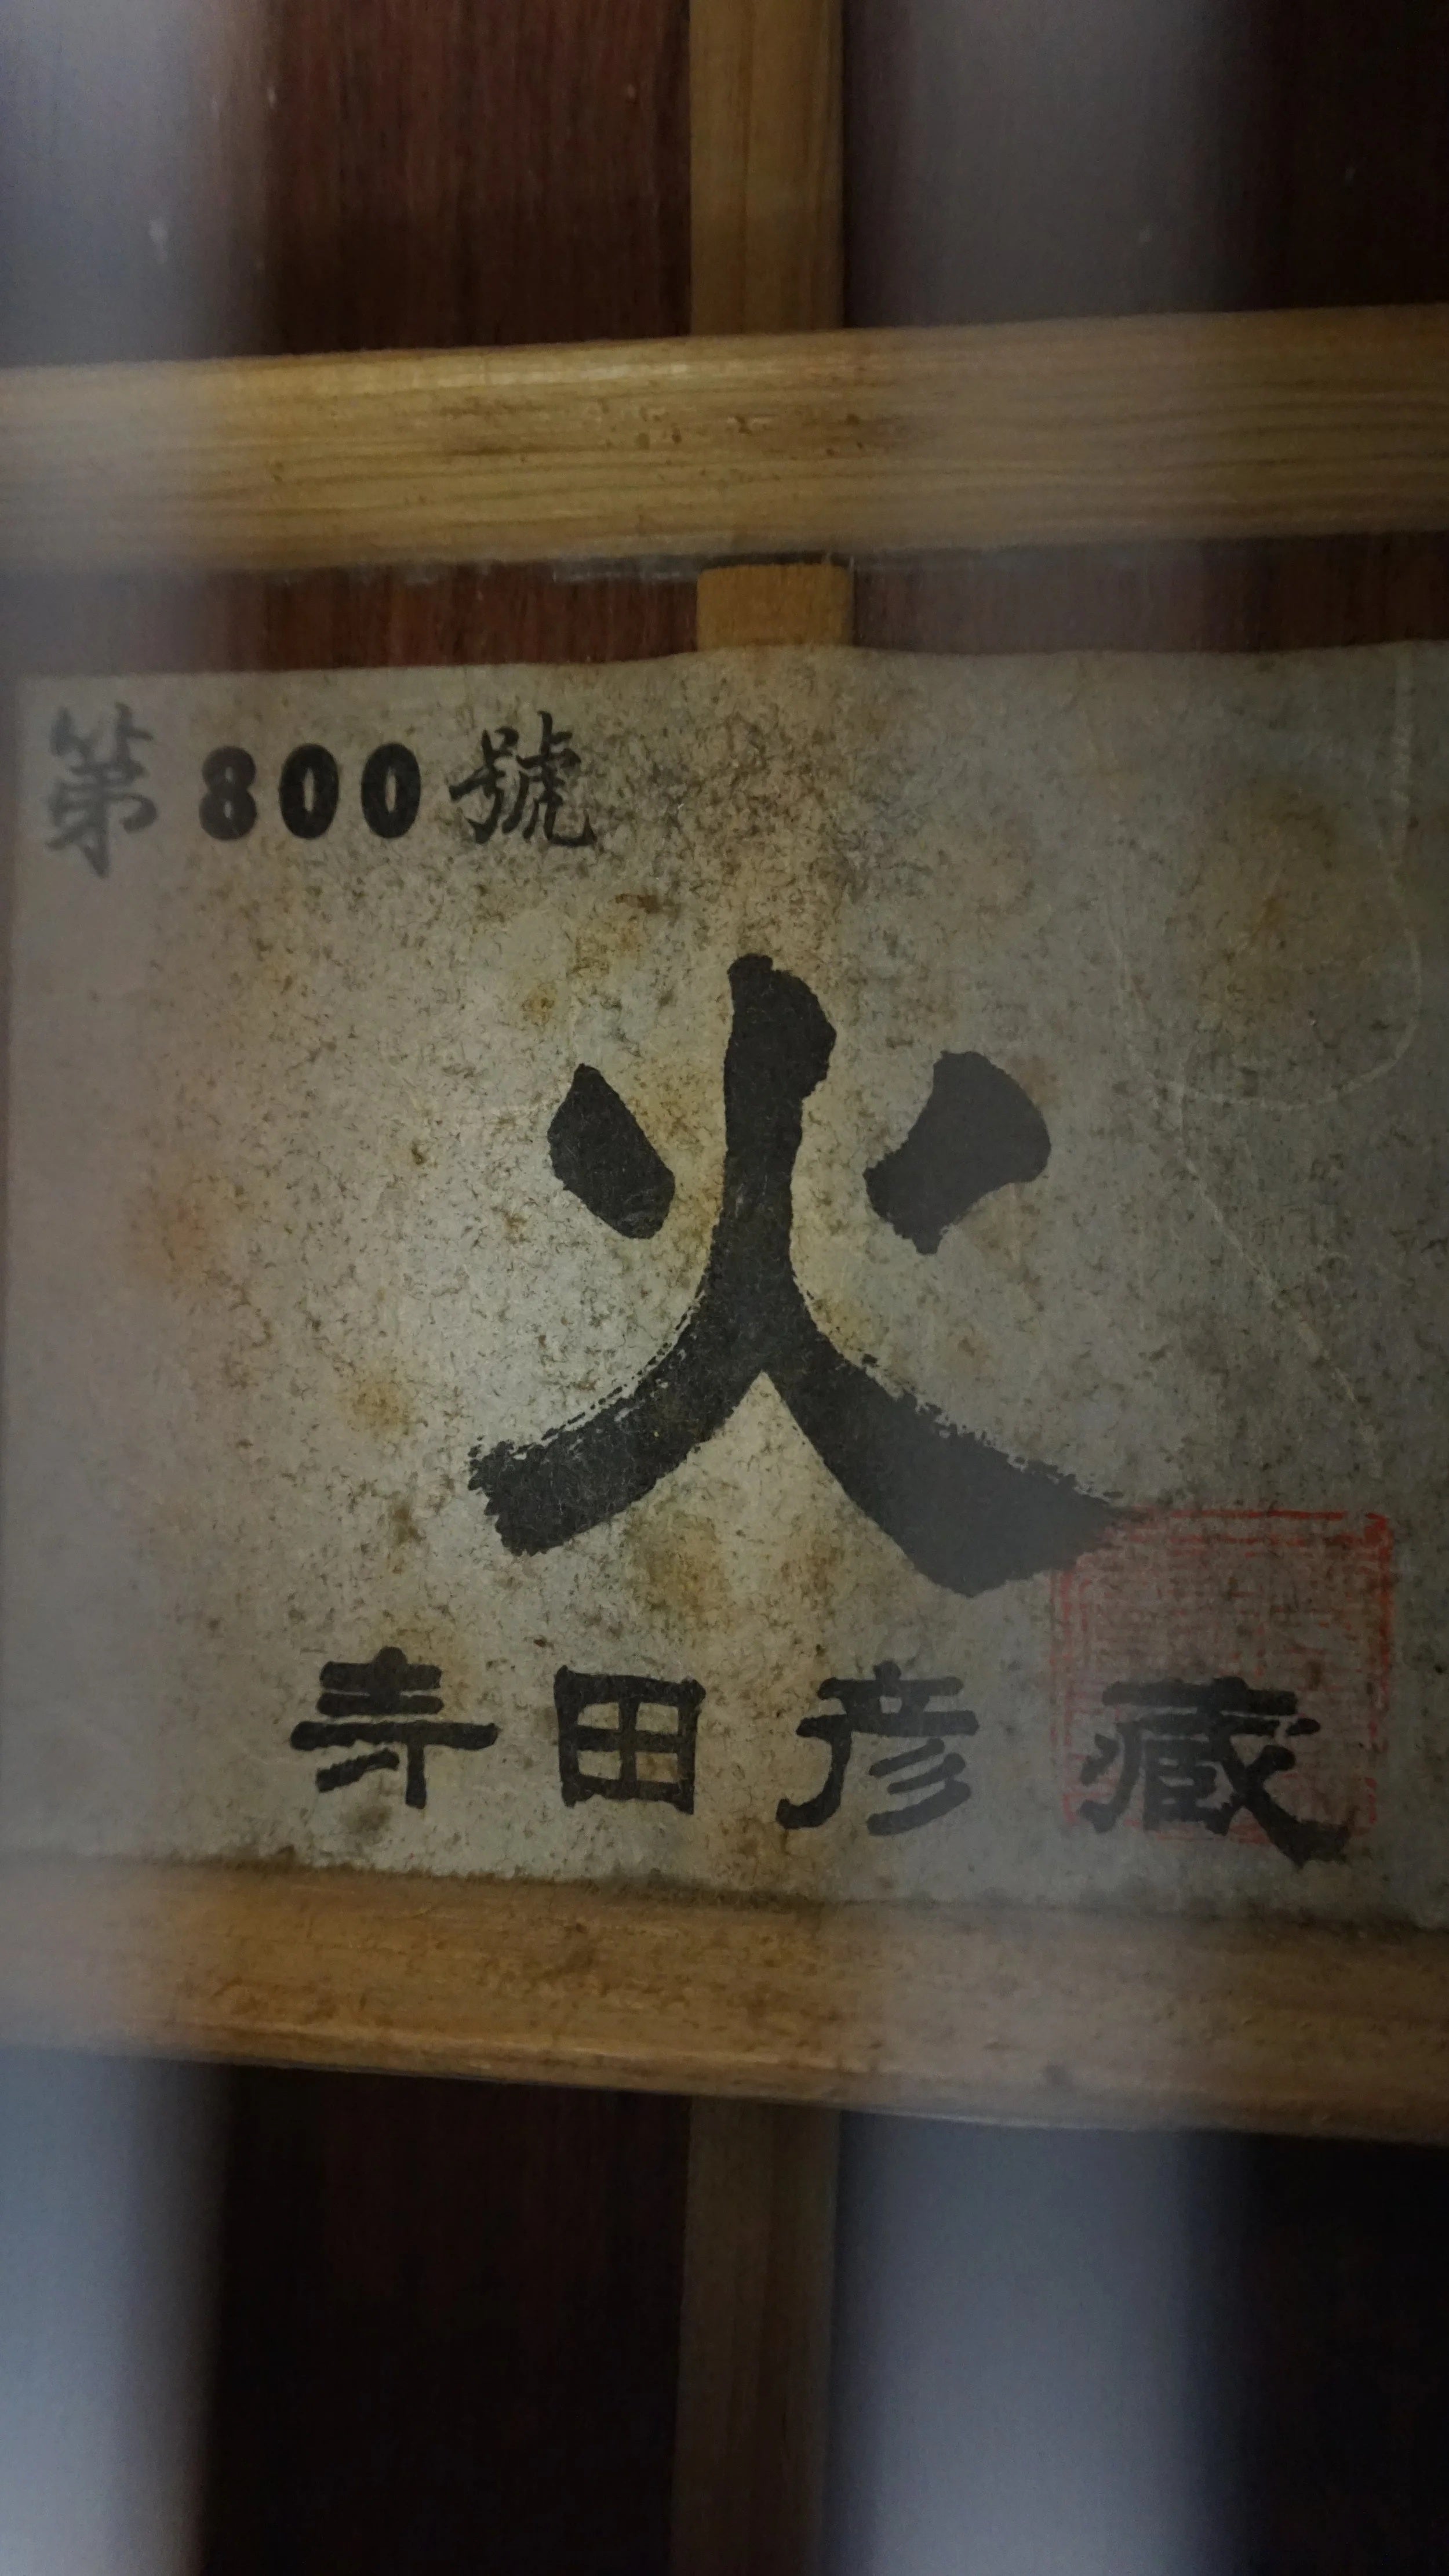 第800號
火
寺田彦蔵